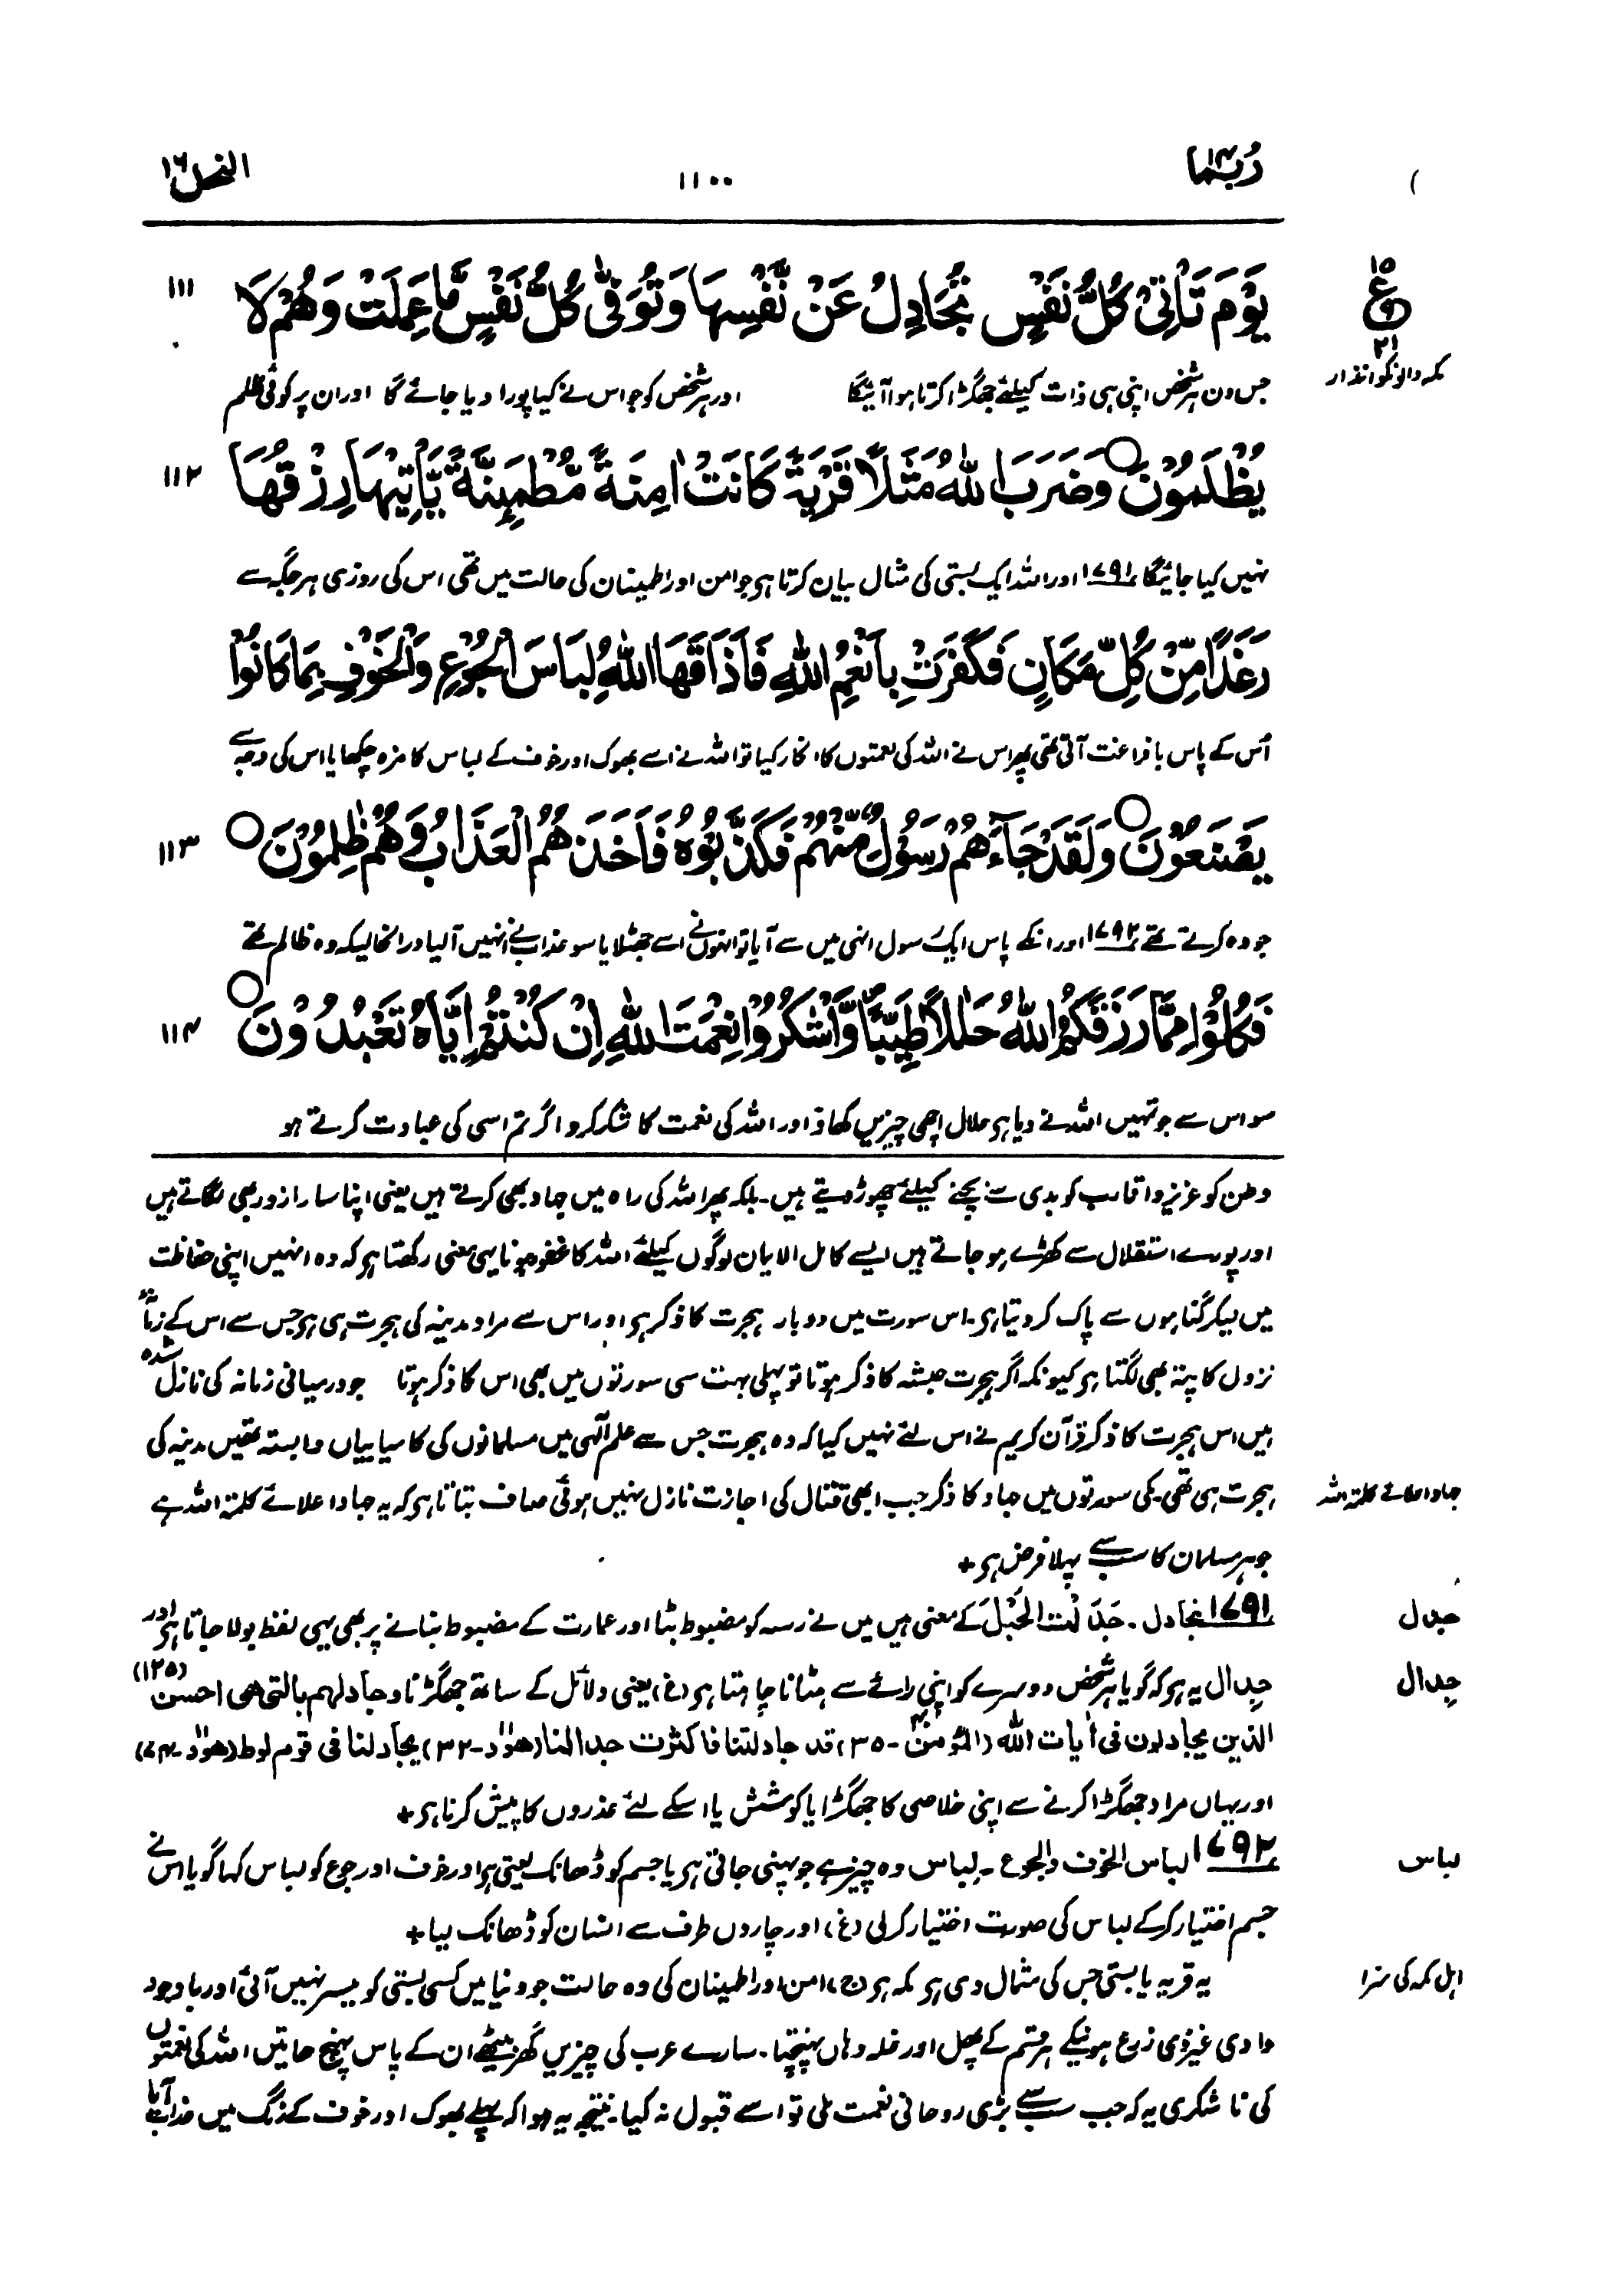 ربما ١٤
١١٠٠
النحل ١٦
١٥
ع
٢١
مکہ والونکو انذار
يَوْمَ تَاْتِيْ كُلُّ نَفْسٍ تُجَادِلُ عَنْ نَّفْسِهَا وَتُوَفّٰى كُلُّ نَفْسٍ مَّا عَمِلَتْ وَهُمْ لَا ١١١
جس دن ہر شخص اپنی ہی ذات کیلئے جھگڑا کرتا ہوا آئیگا اور ہر شخص کو جو اس نے کیا پورا دیا جائے گا اور ان پر کوئی ظلم
يُظْلَمُوْنَ ○ وَضَرَبَ اللّٰهُ مَثَلًا قَرْيَةً كَانَتْ اٰمِنَةً مُّطْمَىِٕنَّةً يَّاْتِيْهَا رِزْقُهَا ١١٢
نہیں کیا جائیگا ١٧٩١ اور اللہ ایک بستی کی مثال بیان کرتا ہو جو امن اور اطمینان کی حالت میں تھی اس کی روزی ہر جگہ سے
رَغَدًا مِّنْ كُلِّ مَكَانٍ فَكَفَرَتْ بِاَنْعُمِ اللّٰهِ فَاَذَاقَهَا اللّٰهُ لِبَاسَ الْجُوْعِ وَالْخَوْفِ بِمَا كَانُوْا
اُس کے پاس بافراغت آتی تھی پھر اس نے اللہ کی نعمتوں کا انکار کیا تو اللہ نے اسے بھوک اور خوف کے لباس کا مزہ چکھایا اس کی وجہ سے
يَصْنَعُوْنَ ○ وَلَقَدْ جَآءَهُمْ رَسُوْلٌ مِّنْهُمْ فَكَذَّبُوْهُ فَاَخَذَهُمُ الْعَذَابُ وَهُمْ ظٰلِمُوْنَ ○ ١١٣
جو وہ کرتے تھے ١٧٩٢ اور انکے پاس ایک رسول انہی میں سے آیا تو انہوں نے اسے جھٹلایا سو عذاب نے انہیں آلیا درانحالیکہ وہ ظالم تھے
فَكُلُوْا مِمَّا رَزَقَكُمُ اللّٰهُ حَلٰلًا طَيِّبًا وَّاشْكُرُوْا نِعْمَتَ اللّٰهِ اِنْ كُنْتُمْ اِيَّاهُ تَعْبُدُوْنَ ○ ١١٤
سو اس سے جو تمہیں اللہ نے دیا ہو حلال اچھی چیزیں کھاؤ اور اللہ کی نعمت کا شکر کرو اگر تم اسی کی عبادت کرتے ہو
وطن کو عزیز و اقارب کو بدی سے بچنے کیلئے چھوڑ دیتے ہیں۔ بلکہ پھر اللہ کی راہ میں جہاد بھی کرتے ہیں یعنی اپنا سارا زور بھی لگاتے ہیں
اور پورے استقلال سے کھڑے ہو جاتے ہیں ایسے کامل الایمان لوگوں کیلئے اللہ کا غفور ہونا یہی معنی رکھتا ہو کہ وہ انہیں اپنی حفاظت
میں لیکر گناہوں سے پاک کر دیتا ہو۔ اس سورت میں دوبار ہجرت کا ذکر ہو اور اس سے مراد مدینہ کی ہجرت ہی ہو جس سے اس کے زمانہ
نزول کا پتہ بھی لگتا ہو کیونکہ اگر ہجرت حبشہ کا ذکر ہوتا تو پہلی بہت سی سورتوں میں بھی اس کا ذکر ہوتا جو درمیانی زمانہ کی نازل شدہ
ہیں اس ہجرت کا ذکر قرآن کریم نے اس لئے نہیں کیا کہ وہ ہجرت جس سے علم الٰہی میں مسلمانوں کی کامیابیاں وابستہ تھیں مدینہ کی
ہجرت ہی تھی۔ مکی سورتوں میں جہاد کا ذکر جب ابھی قتال کی اجازت نازل نہیں ہوئی صاف بتاتا ہو کہ یہ جہاد اعلائے کلمۃ اللہ ہے
جہاد اعلائے کلمۃ اللہ
جو ہر مسلمان کا سب سے پہلا فرض ہو +
١٧٩١ تجادل۔ جَدَلْتُ الحَبْلَ کے معنی ہیں میں نے رسہ کو مضبوط بٹا اور عمارت کے مضبوط بنانے پر بھی یہی لفظ بولا جاتا ہو اور
جدال
جِدال یہ ہو کہ گویا ہر شخص دوسرے کو اپنی رائے سے ہٹانا چاہتا ہو (غ) یعنی دلائل کے ساتھ جھگڑنا وجادلهم بالتی هی احسن (١٢٥)
جِدال
الذین یجادلون فی اٰیات اللہ (المؤمن ٤٠-٣٥) قد جادلتنا فاکثرت جدالنا (هود ١١-٣٢) یجادلنا فی قوم لوط (هود ١١-٧٤)
اور یہاں مراد جھگڑا کرنے سے اپنی خلاصی کا جھگڑا یا کوشش یا اسکے لئے عذروں کا پیش کرنا ہو +
١٧٩٢ لباس الخوف والجوع۔ لِباس وہ چیز ہے جو پہنی جاتی ہو یا جسم کو ڈھانک لیتی ہو اور خوف اور جوع کو لباس کہا گویا اس نے
لباس
جسم اختیار کرکے لباس کی صورت اختیار کرلی (غ) اور چاروں طرف سے انسان کو ڈھانک لیا +
یہ قریہ یا بستی جس کی مثال دی ہو مکہ ہو (ج) امن اور اطمینان کی وہ حالت جو دنیا میں کسی بستی کو میسر نہیں آئی اور باوجود
اہل مکہ کی سزا
وادی غیر ذی زرع ہونیکے ہر قسم کے پھل اور غلہ وہاں پہنچتا۔ سارے عرب کی چیزیں گھر بیٹھے ان کے پاس پہنچ جاتیں اللہ کی نعمتوں
کی ناشکری یہ کہ جب سب سے بڑی روحانی نعمت ملی تو اسے قبول نہ کیا۔ نتیجہ یہ ہوا کہ پہلے بھوک اور خوف کے رنگ میں عذاب آیا